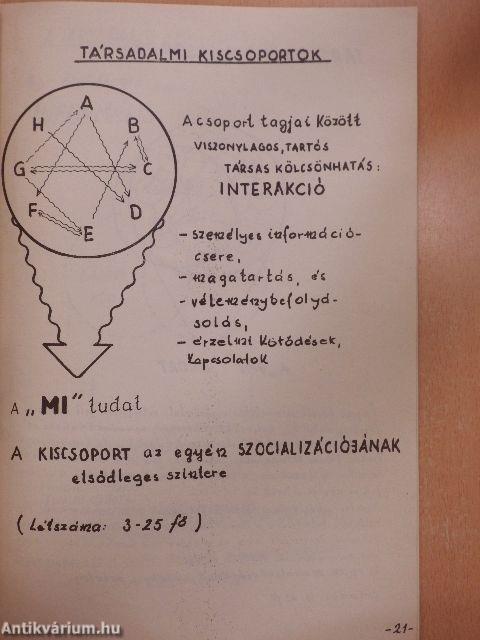 TÁRSADALMI KISCSOPORTOK
A
H
B
G
C
F
D
E
A csoport tagjai között
VISZONYLAGOS, TARTÓS
TÁRSAS KÖLCSÖNHATÁS:
INTERAKCIÓ
- személyes információ-
csere,
- magatartás, és
- véleménybefolyá-
solás,
- érzelmi kötődések,
kapcsolatok
A „MI" tudat
A KISCSOPORT az egyén SZOCIALIZÁCIÓJÁNAK
elsődleges színtere
(Létszáma: 3-25 fő)
-21-
Antikvárium.hu